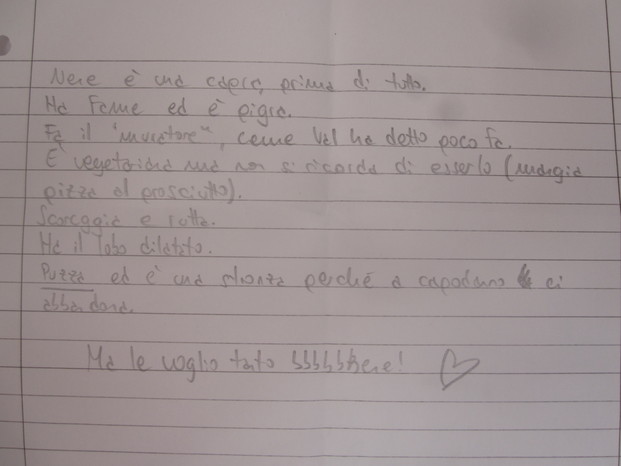 Nene è una capra, prima di tutto.
Ha Fame ed è pigra.
Fa il "muratore", come Val ha detto poco fa.
È vegetariana ma non si ricorda di esserlo (mangia
pizza al prosciutto).
Scoreggia e rutta.
Ha il lobo dilatato.
Puzza ed è una stronza perché a capodanno ci
abbandona.
Ma le voglio tanto bbbbbbene!